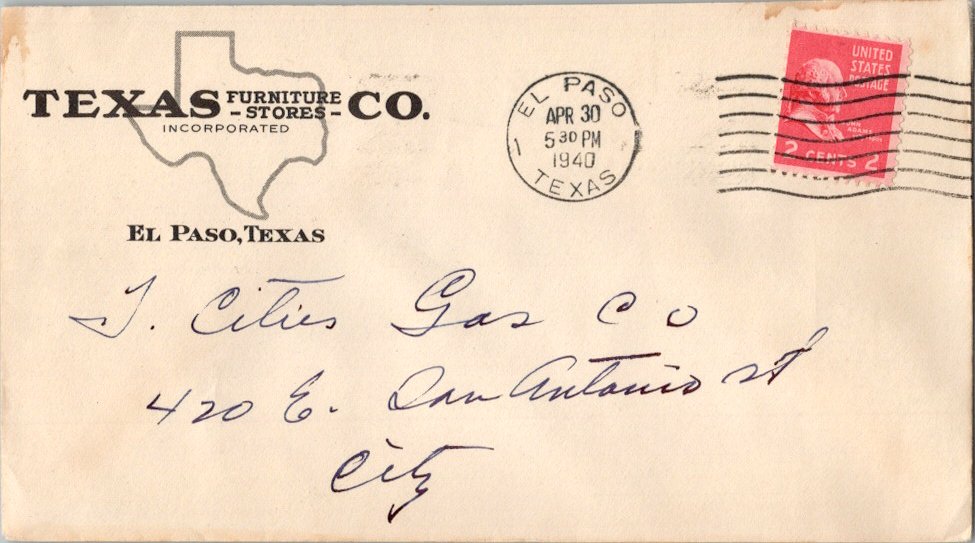 TEXAS FURNITURE -STORES- CO.
INCORPORATED
EL PASO, TEXAS
EL PASO
APR 30
5 30 PM
1940
TEXAS
UNITED
STATES
POSTAGE
ADAMS
2 CENTS 2
T. Cities Gas Co
420 E. San Antonio st
City